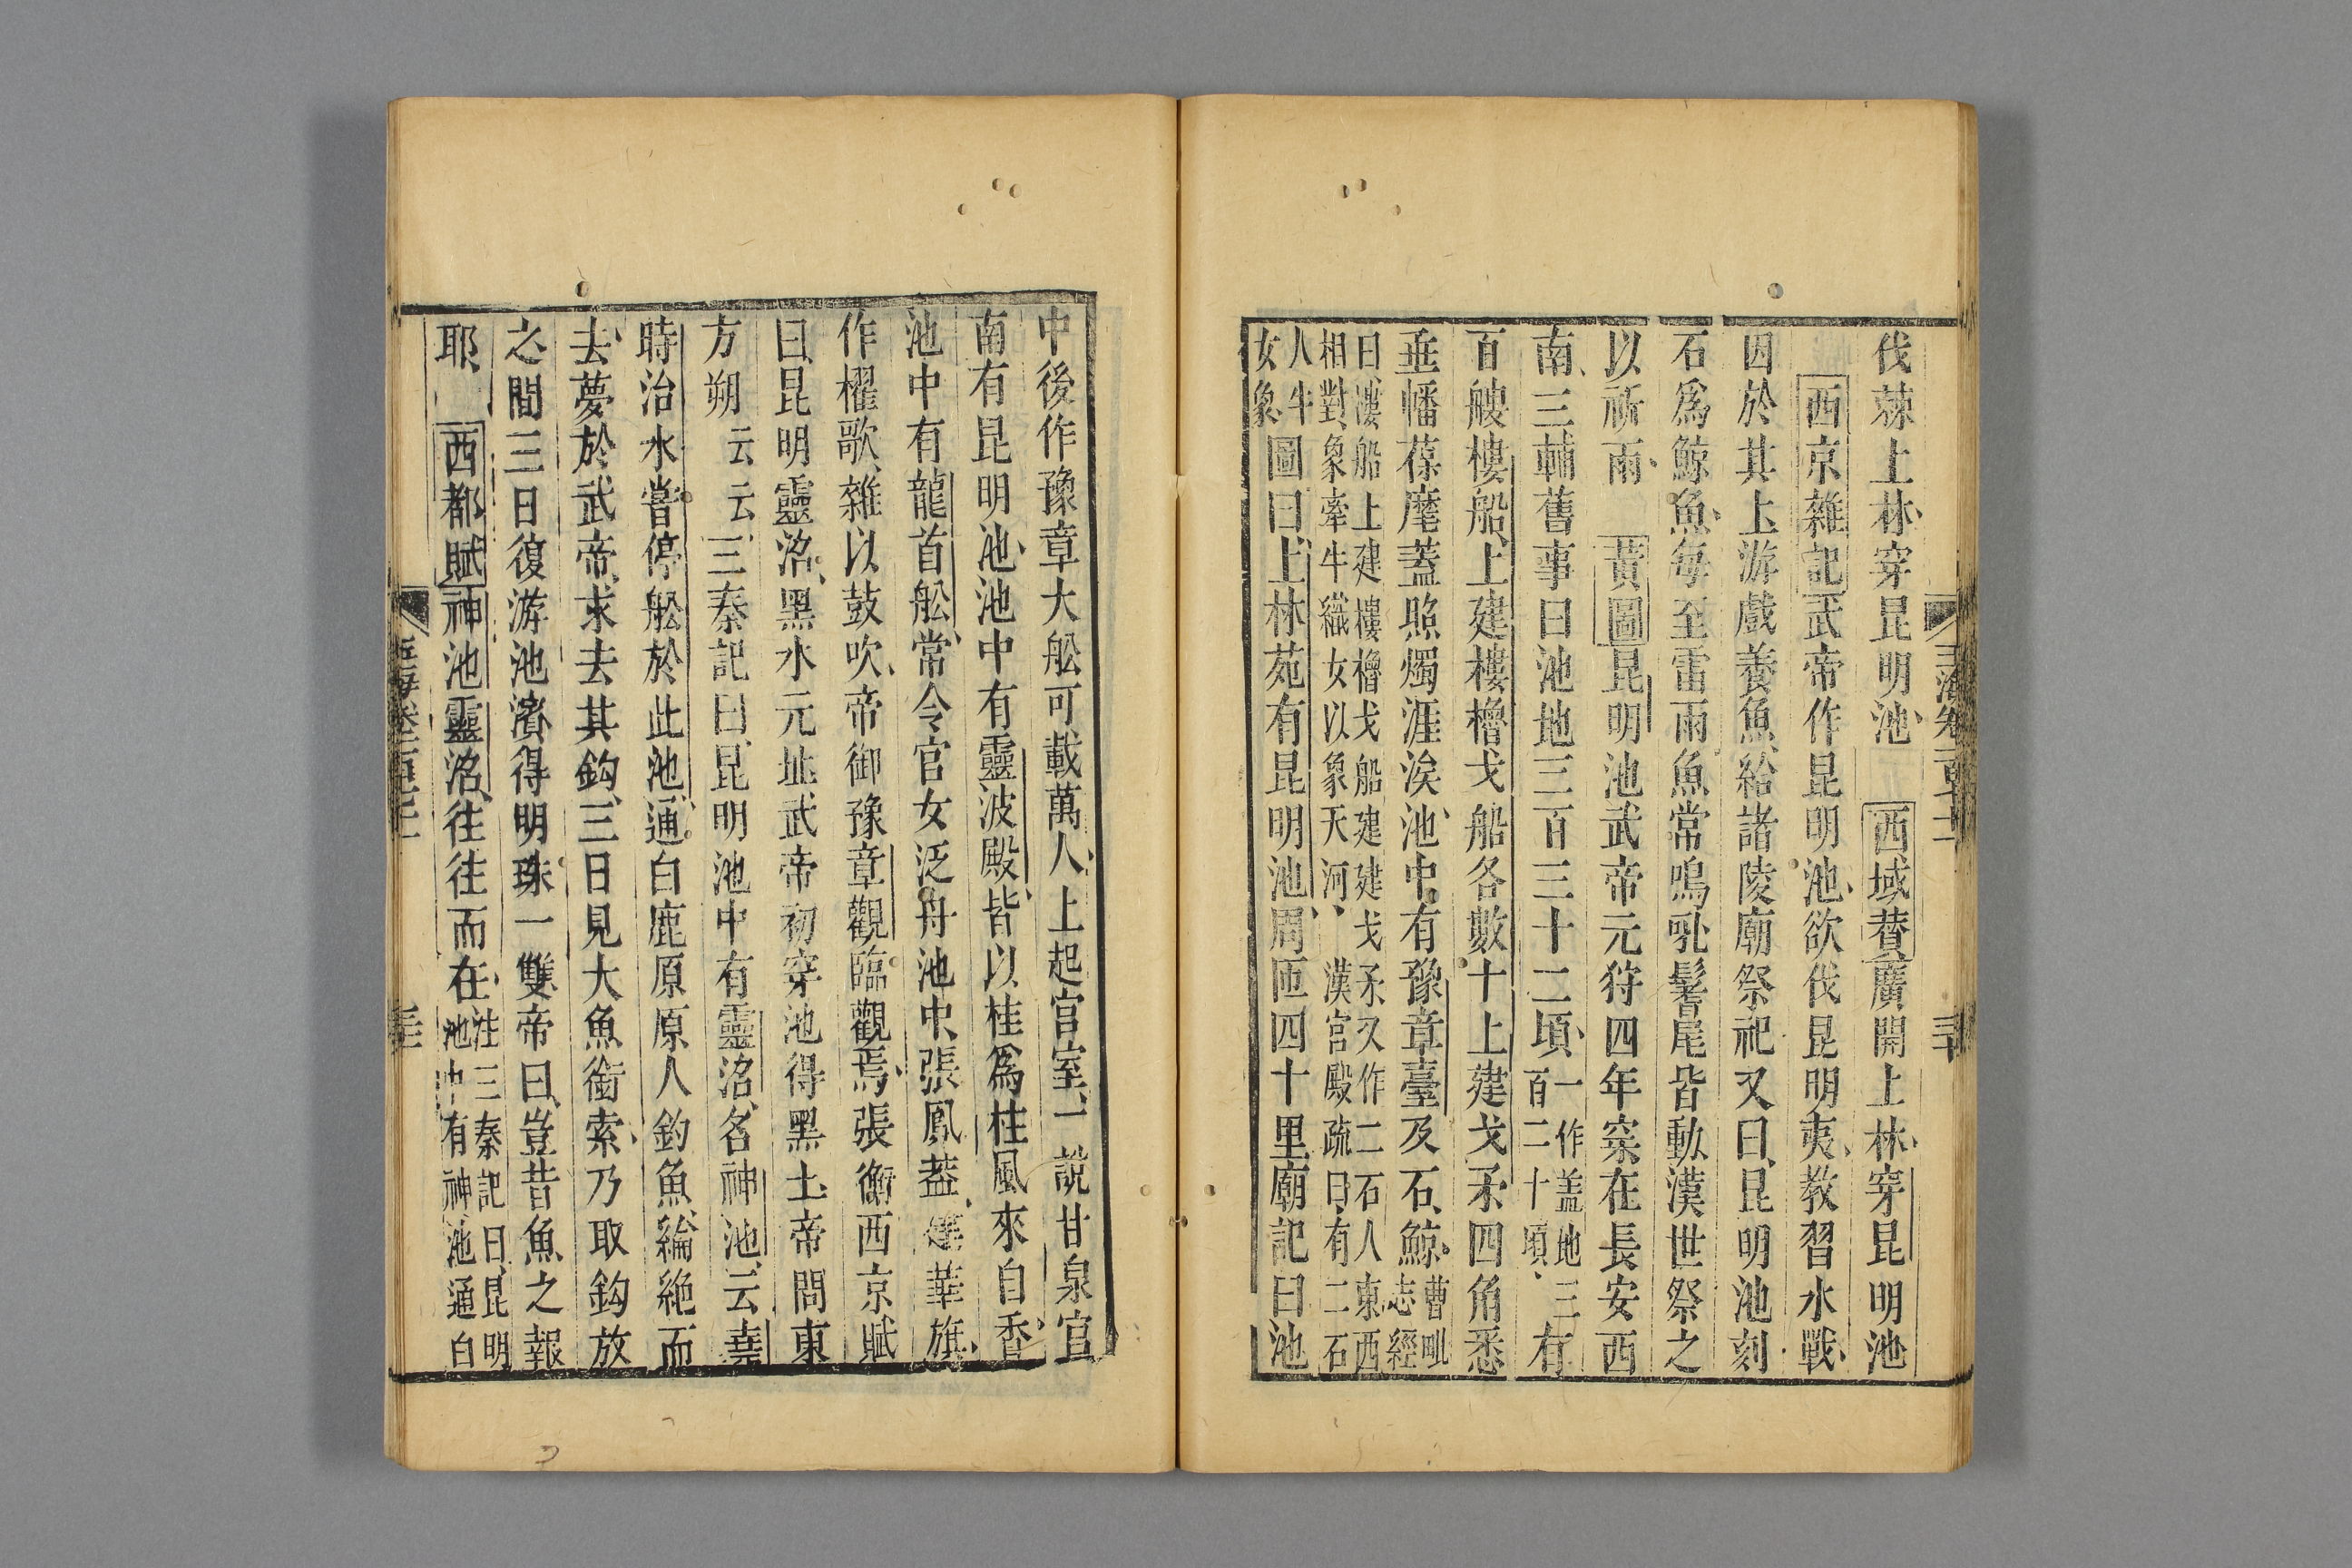 伐棘上林穿昆明池 西域賛廣開上林穿昆明池
西京雜記武帝作昆明池欲伐昆明夷教習水戰
因於其上游戲養魚給諸陵廟祭祀又曰昆明池刻
石爲鯨魚每至雷雨魚常鳴吼鬐尾皆動漢世祭之
以祈雨 黃圖昆明池武帝元狩四年穿在長安西
南三輔舊事曰池地三百三十二頃一作盖地三百二十頃有
百艘樓船上建樓櫓戈船各數十上建戈矛四角悉
垂幡葆麾蓋照燭涯涘池中有豫章臺及石鯨曹毗志經
曰漊船上建樓櫓戈船建建戈矛又作二石人東西
相對象牽牛織女以象天河 漢宮殿疏曰有二石
人牛女象圖曰上林苑有昆明池周匝四十里廟記曰池
中後作豫章大舩可載萬人上起宮室一說甘泉宮
南有昆明池池中有靈波殿皆以桂爲柱風來自香
池中有龍首舩常令官女泛舟池中張鳳葢建華旗
作櫂歌雜以鼓吹帝御豫章觀臨觀焉張衡西京賦
曰昆明靈沼黑水元址武帝初穿池得黑土帝問東
方朔云云三秦記曰昆明池中有靈沼名神池云堯
時治水嘗停舩於此池通白鹿原原人釣魚綸絶而
去夢於武帝求去其鈎三日見大魚銜索乃取鈎放
之間三日復游池濱得明珠一雙帝曰豈昔魚之報
耶 西都賦神池靈沼往往而在注三秦記曰昆明池中有神池通白